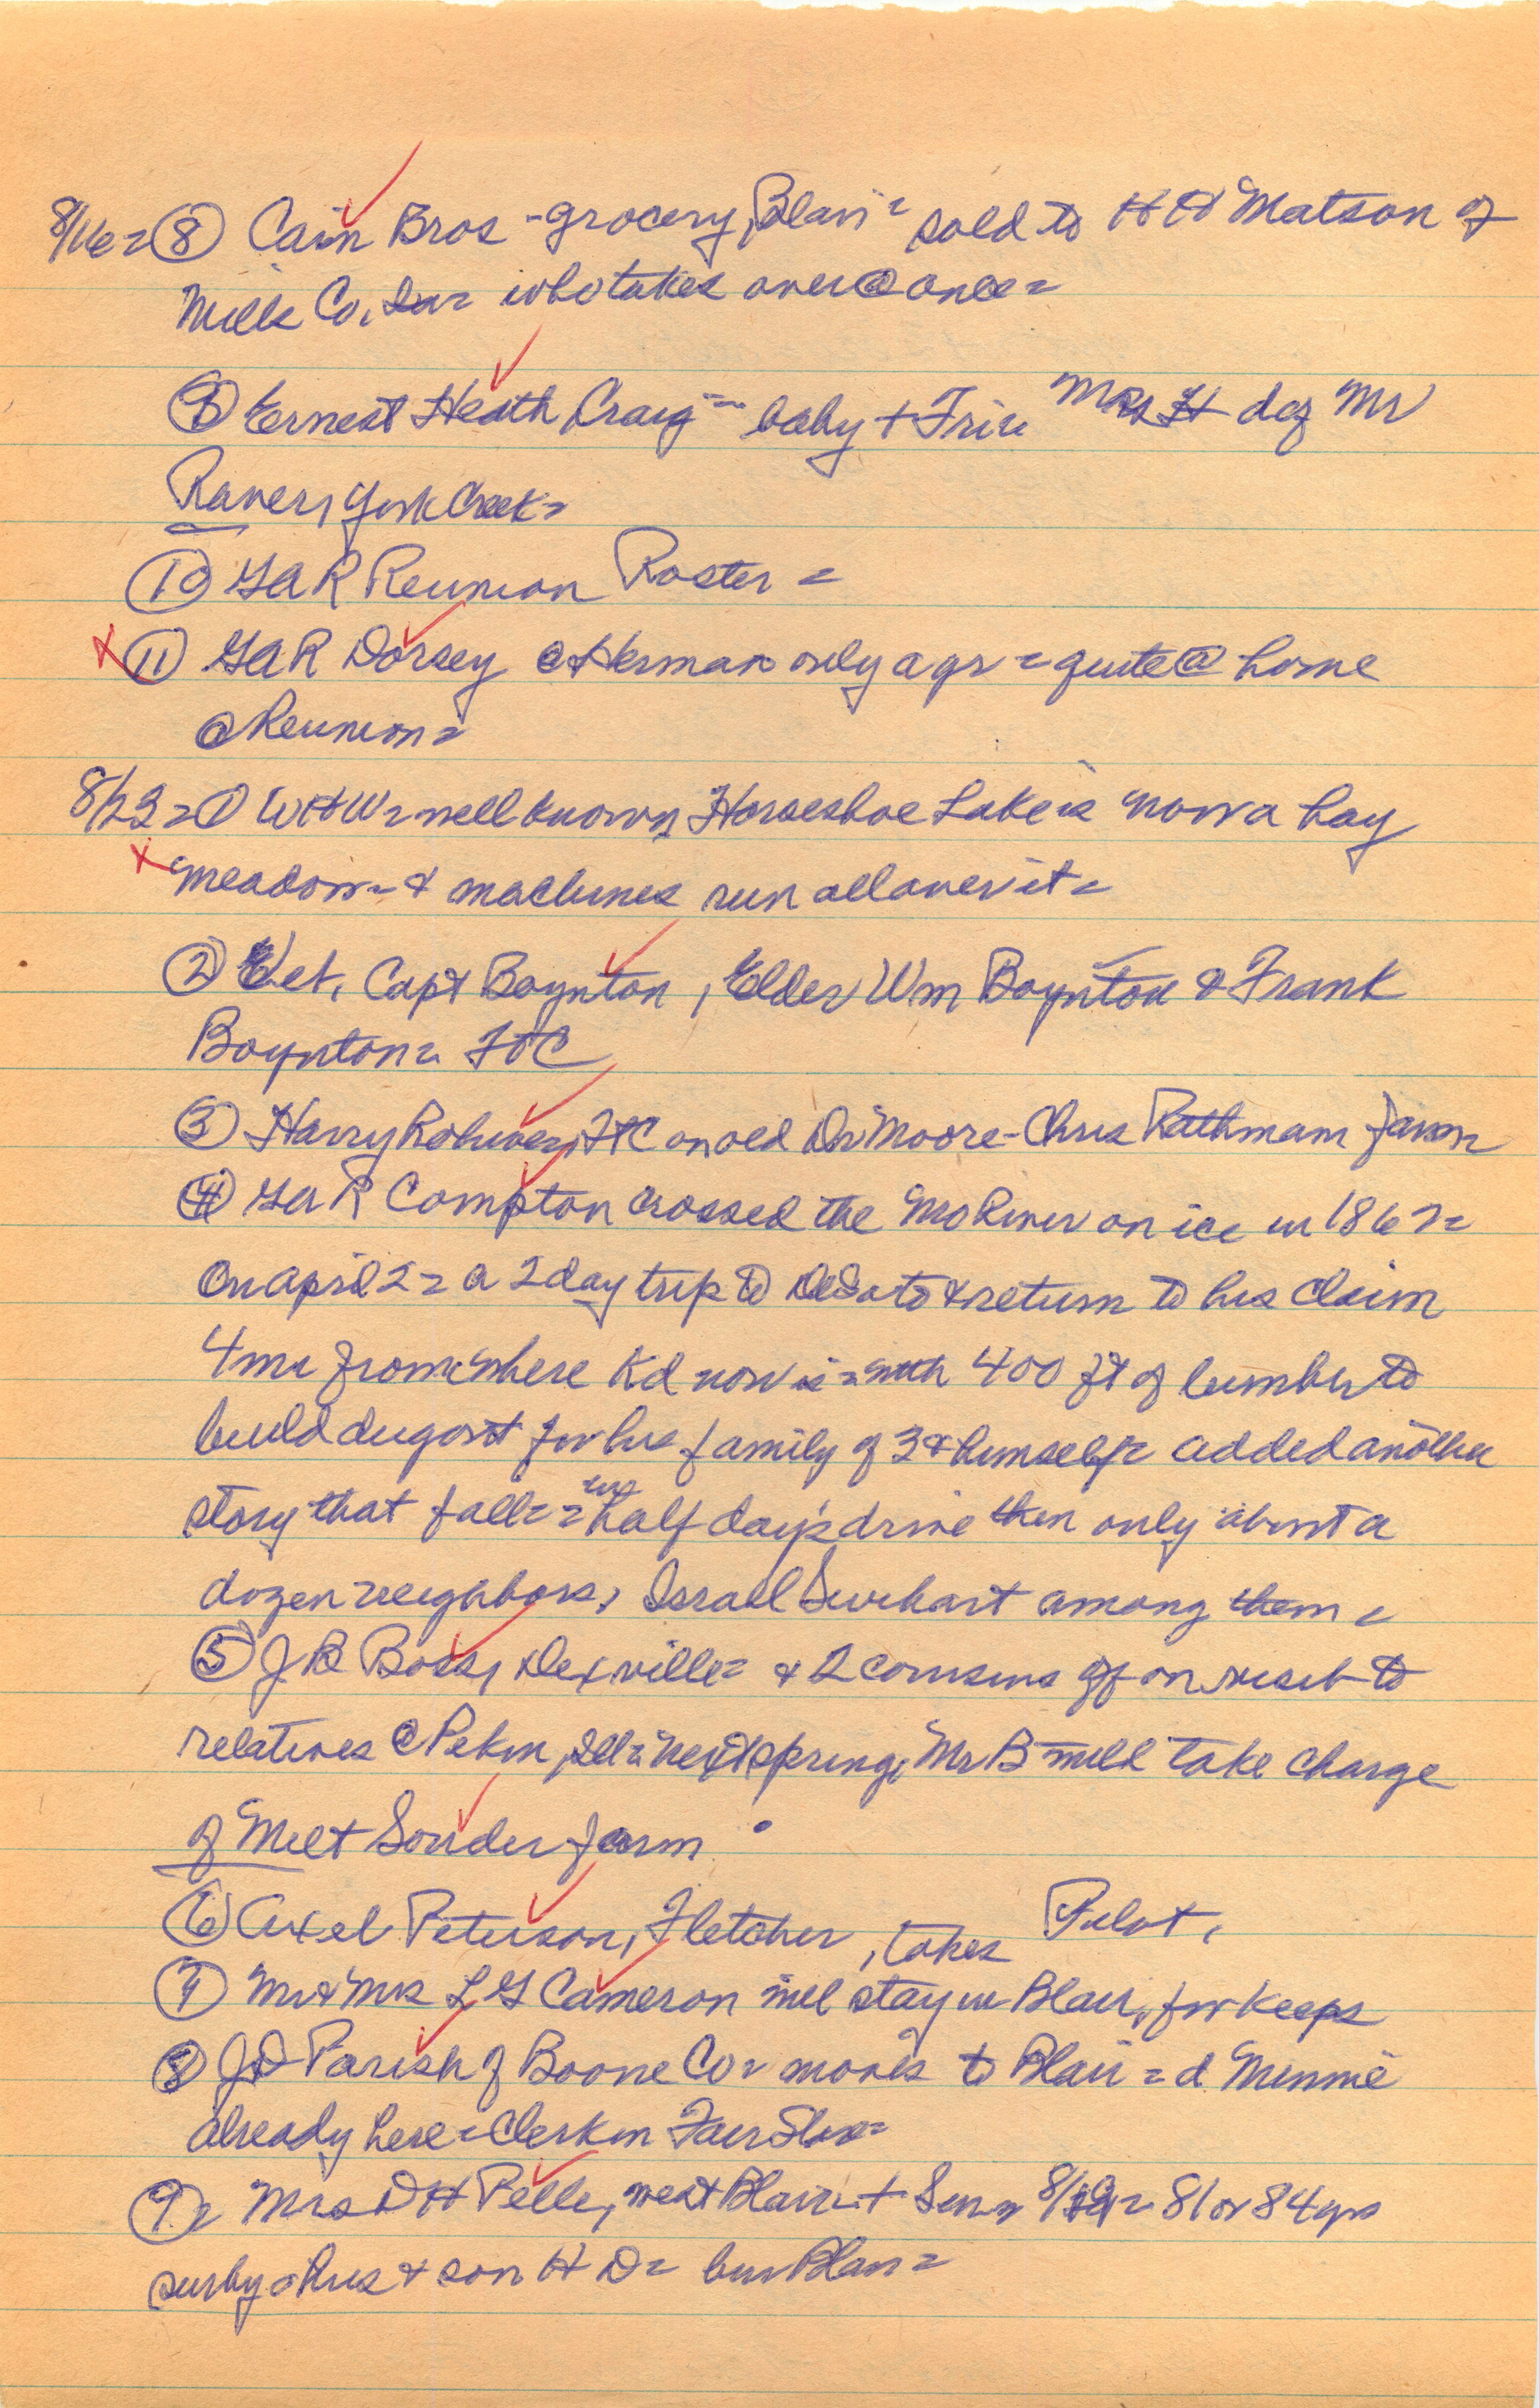 8/16 = ⑧ Cain Bros - grocery, Blair = sold to H H Matson of
Mills Co, Ia = who takes over @ once =
⑨ Ernest Heath Craig = baby + Fri Mrs H dg Mr
Raver, York Creek =
⑩ GAR Reunion Roster =
x ⑪ GAR Dorsey @ Herman only a yr = quite @ home
@ Reunion =
8/23 = ① WHW = well known Horseshoe Lake is now a hay
x meadow = & machines run all over it =
② Vet, Capt Boynton, Elder Wm Boynton & Frank
Boynton = FtC
③ Harry Rohwer, FtC on old Dr Moore - Chris Rathmann farm
④ GAR Compton crossed the Mo River on ice in 1867 =
on April 2 = a 2 day trip to DeSoto & return to his claim
4 mi from where Kd now is = with 400 ft of lumber to
build dugout for his family of 3 & himself = added another
story that fall = = in half day's drive then only about a
dozen neighbors, Israel Swihart among them =
⑤ J B Boss, Dexville = & 2 cousins off on visit to
relatives @ Pekin, Ill = next spring, Mr B will take charge
of Milt Souder farm
⑥ Axel Peterson, Fletcher, takes Pilot,
⑦ Mr & Mrs L G Cameron will stay in Blair, for keeps
⑧ J D Parish of Boone Co = moves to Blair = d Minnie
already here = clerk in Fair Store =
⑨ = Mrs D H Pelle, west Blair = + Sun 8/19 = 81 or 84 yrs
sur by hus & son H D = bur Blair =